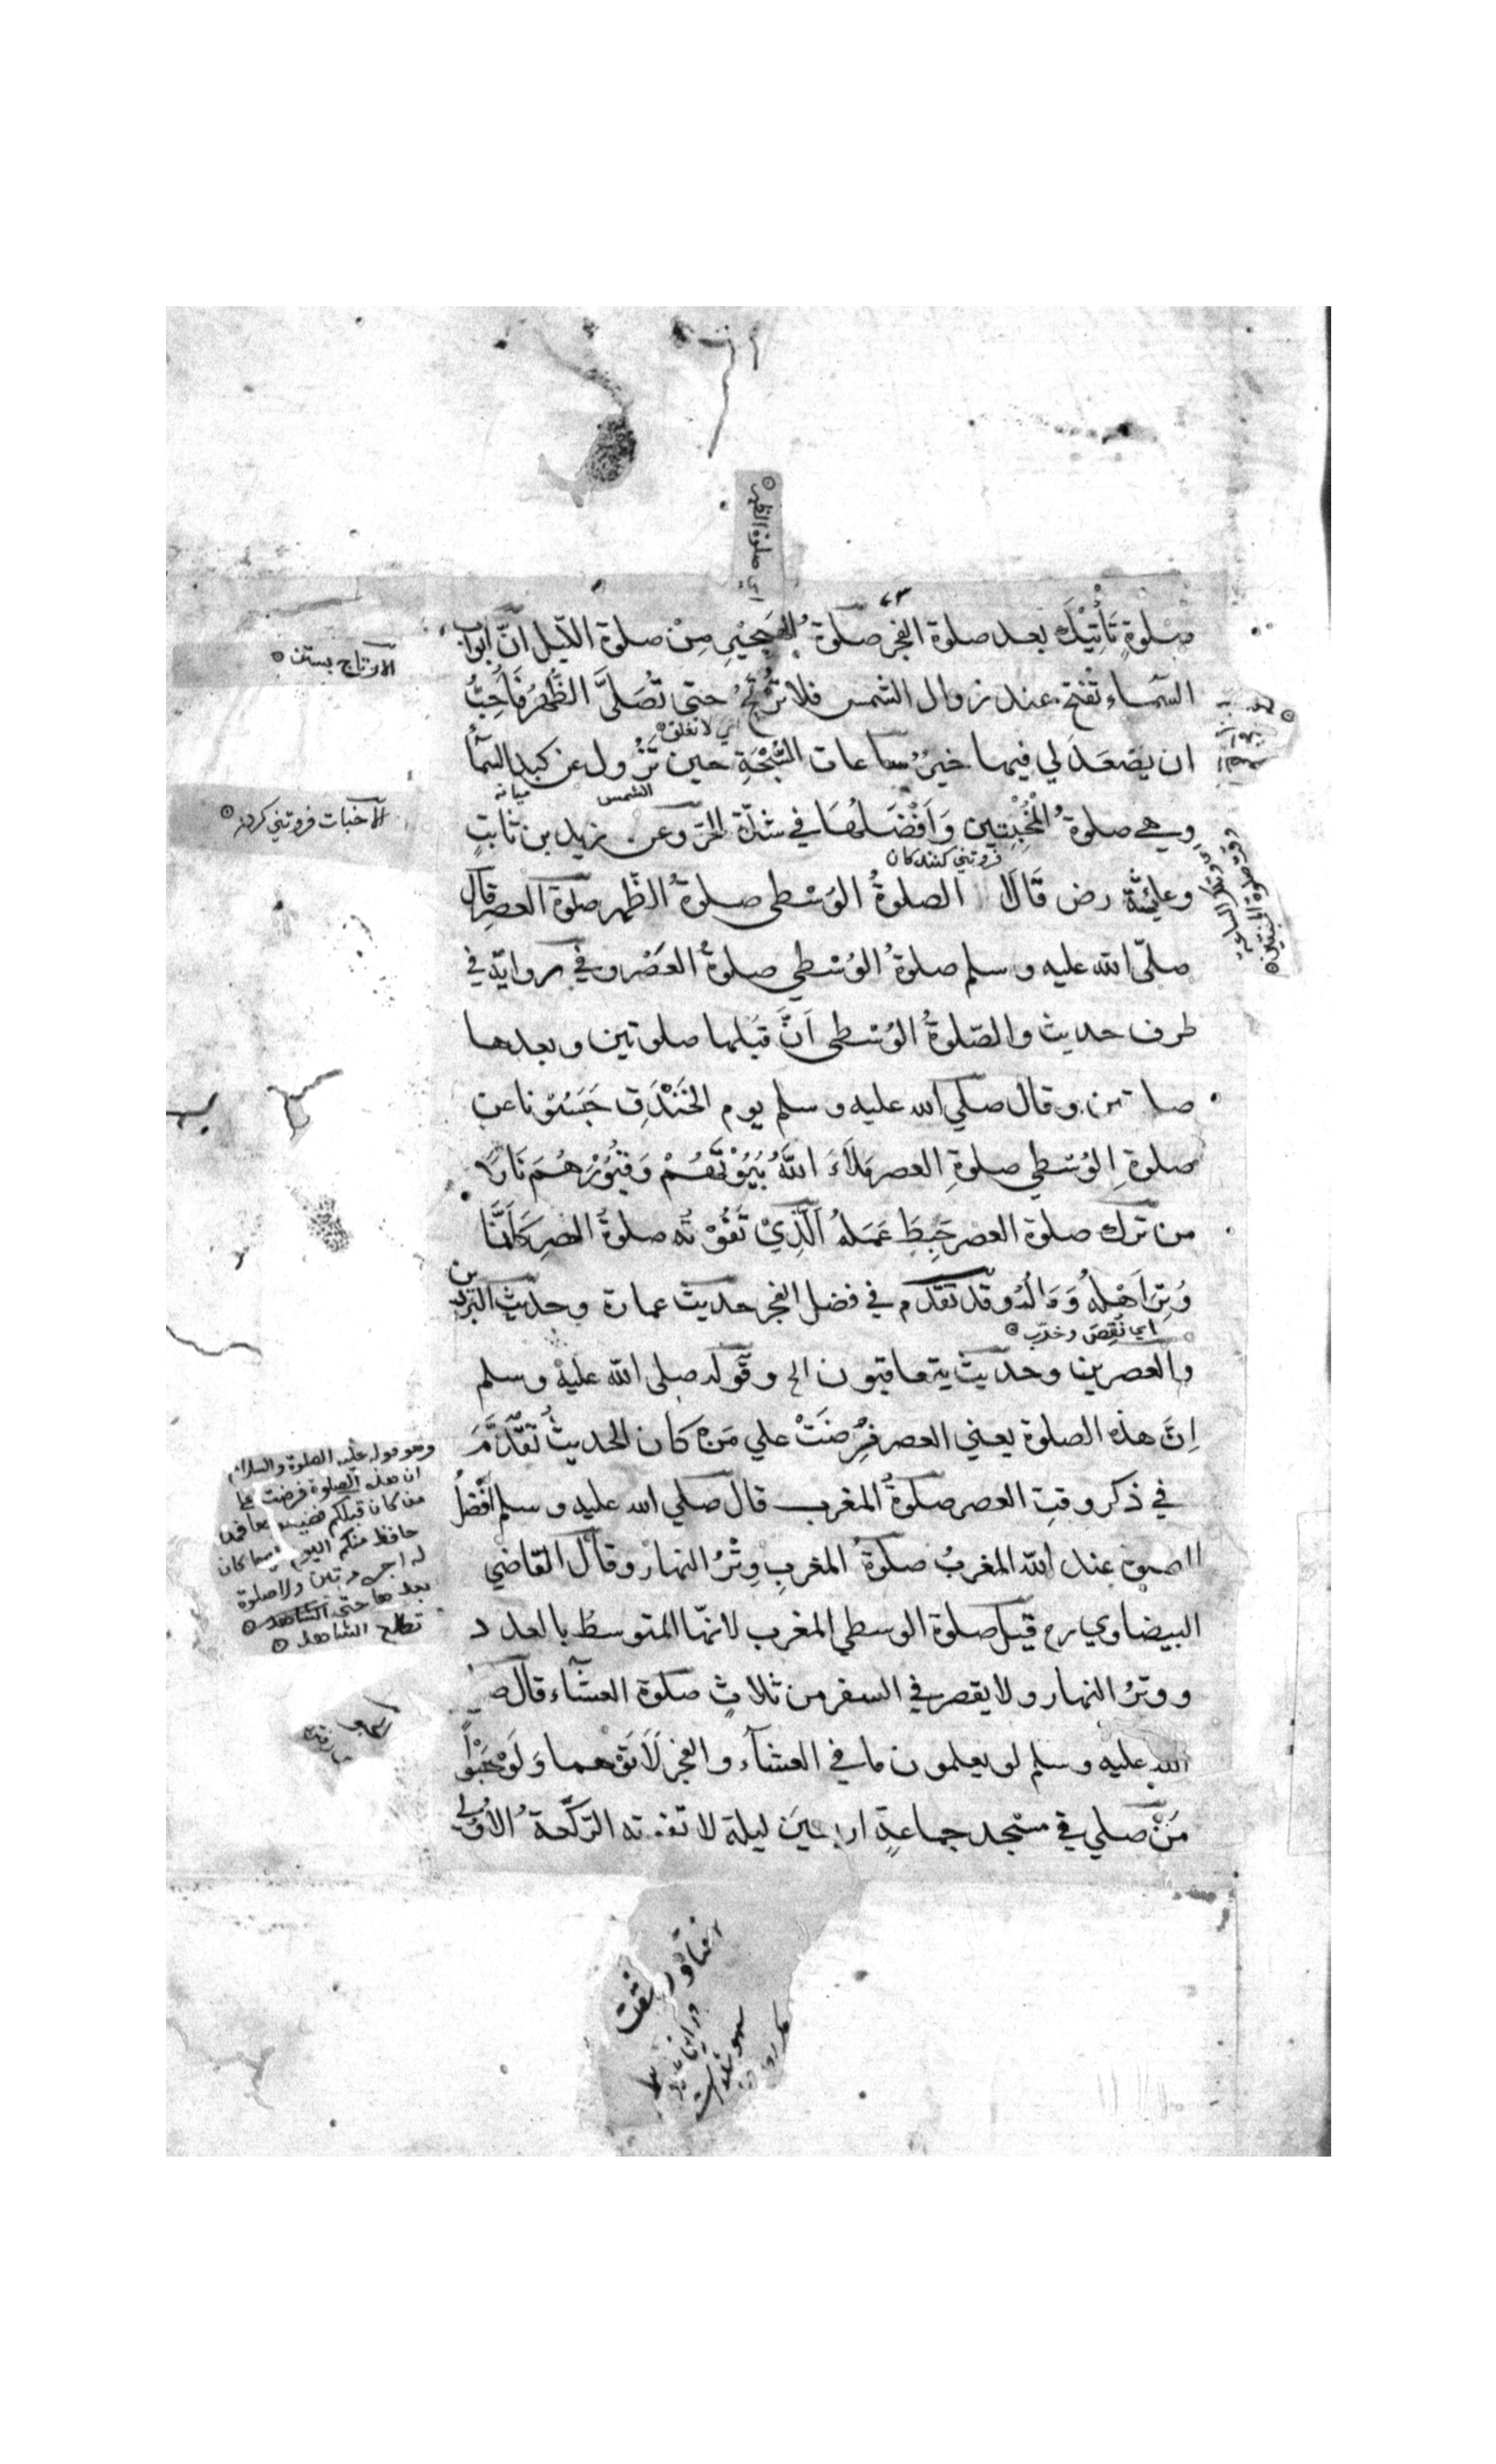 اي صلوة الظهر
صلوةٍ تَأتِيْكَ بعد صلوة الفجر صلوةُ الهَجِيْرِ مِنْ صلوة اللّيل انّ ابواب
السّماء تفتح عند زوال الشمس فلا تُرْتَجُ حتى تُصَلَّى الظُّهرُ فَاُحِبُّ
اي لا تغلق
ان يَصْعَدَ لي فيها خيرٌ ساعات السُّبْحَةِ حين تَزُول عن كبد السمآء
الشمس
ميانه
وهي صلوةُ المُخْبِتِين وَاَفْضَلُهَا في شدّة الحرّ وعن زيد بن ثابتٍ
فروتني كنندكان
وعائشة رض قَالَا الصلوةُ الوُسْطى صلوةُ الظّهر صلوة العصر قال
صلّى الله عليه وسلم صلوةُ الوُسْطي صلوةُ العَصْر وفي رواية في
طرف حديث والصّلوةُ الوُسْطى اَنَّ قبلها صلوتين وبعدها
صلوتين وقال صلي الله عليه وسلم يوم الخَنْدَقِ حَبَسُوْنا عن
صلوةِ الوُسْطي صلوةِ العصر مَلَاءَ اللهُ بُيُوْتَهُمْ وَقُبُوْرَهُم نَارًا
من ترك صلوة العصر حَبِطَ عَمَلُهُ اَلَّذِيْ تَفُوْتُه صلوةُ العصر كَاَنَّمَا
وُتِرَ اَهْلُهُ وَمَالُهُ وقد تقدّم في فضل الفجر حديث عمارة وحديث البَرْدَين
اي نُقِصَ وخرّب
والعصرين وحديث يتعاقبون الخ وقوله صلى الله عليه وسلم
اِنَّ هذه الصلوة يعني العصر فُرِضَتْ علي مَن كان الحديثُ تَقَدَّمَ
في ذكر وقتِ العصر صلوةُ المغرب قال صلي الله عليه وسلم اَفْضَلُ
الصلوة عند الله المغربُ صلوةُ المغربِ وِتْرُ النهار وقال القاضي
البيضاوي رح قيل صلوة الوسطي المغرب لانّها المتوسط بالعدد
ووترُ النهار ولا يقصر في السفر من ثلاثٍ صلوة العشاء قال صلي
الله عليه وسلم لو يعلمون ما في العشآء والفجر لَاَتَوْهما وَلَوْ حَبْوًا
مَنْ صلي في مسجد جماعةٍ اربعين ليلة لا تفوته الركعةُ الاُوْلى
الارتاج بستن
الاخبات فروتني كردن
وهو قوله عليه الصلوة والسلام
ان هذه الصلوة فرضت علي
من كان قبلكم فضيعوها فمن
حافظ منكم اليوم عليها كان
له اجره مرتين ولا صلوة
بعدها حتى الشاهد
تطلع الشاهد